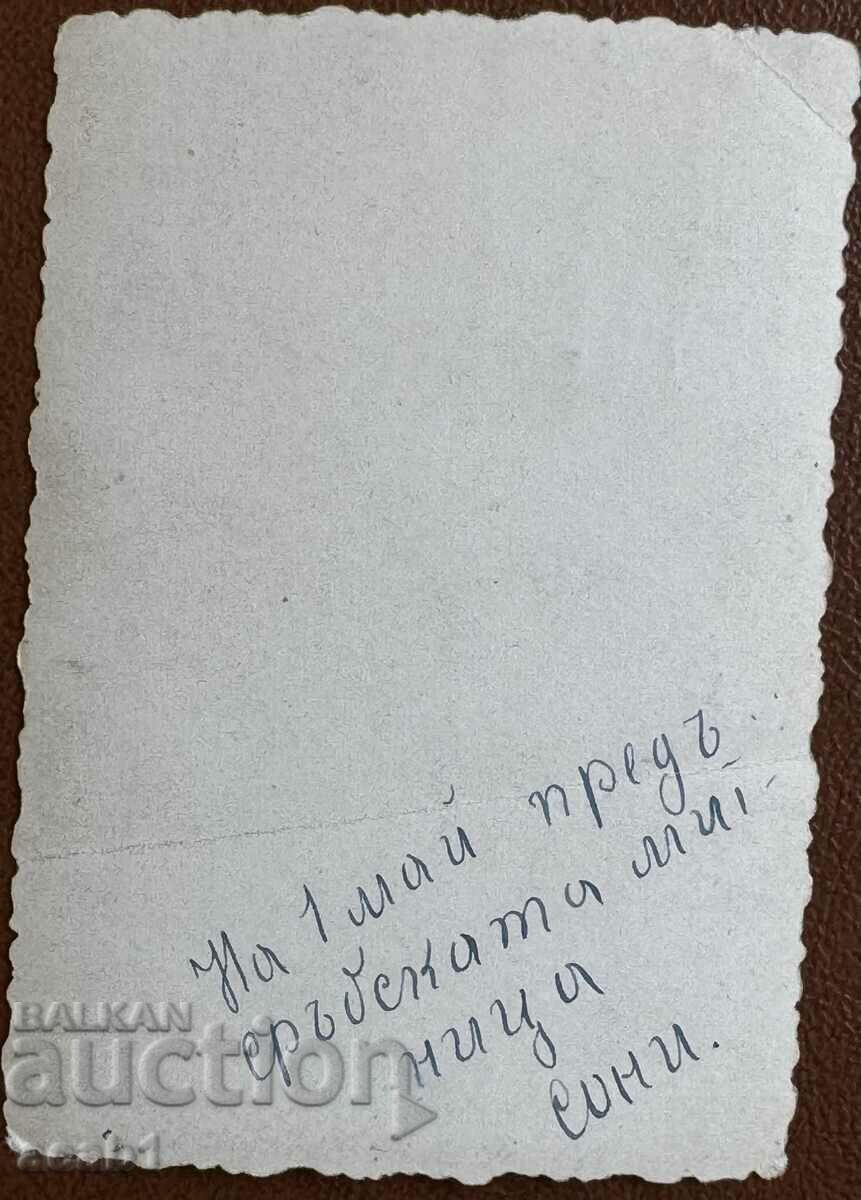 На 1 май предъ
сръбската мит-
ница
Сони.
BALKAN
auction
acab1